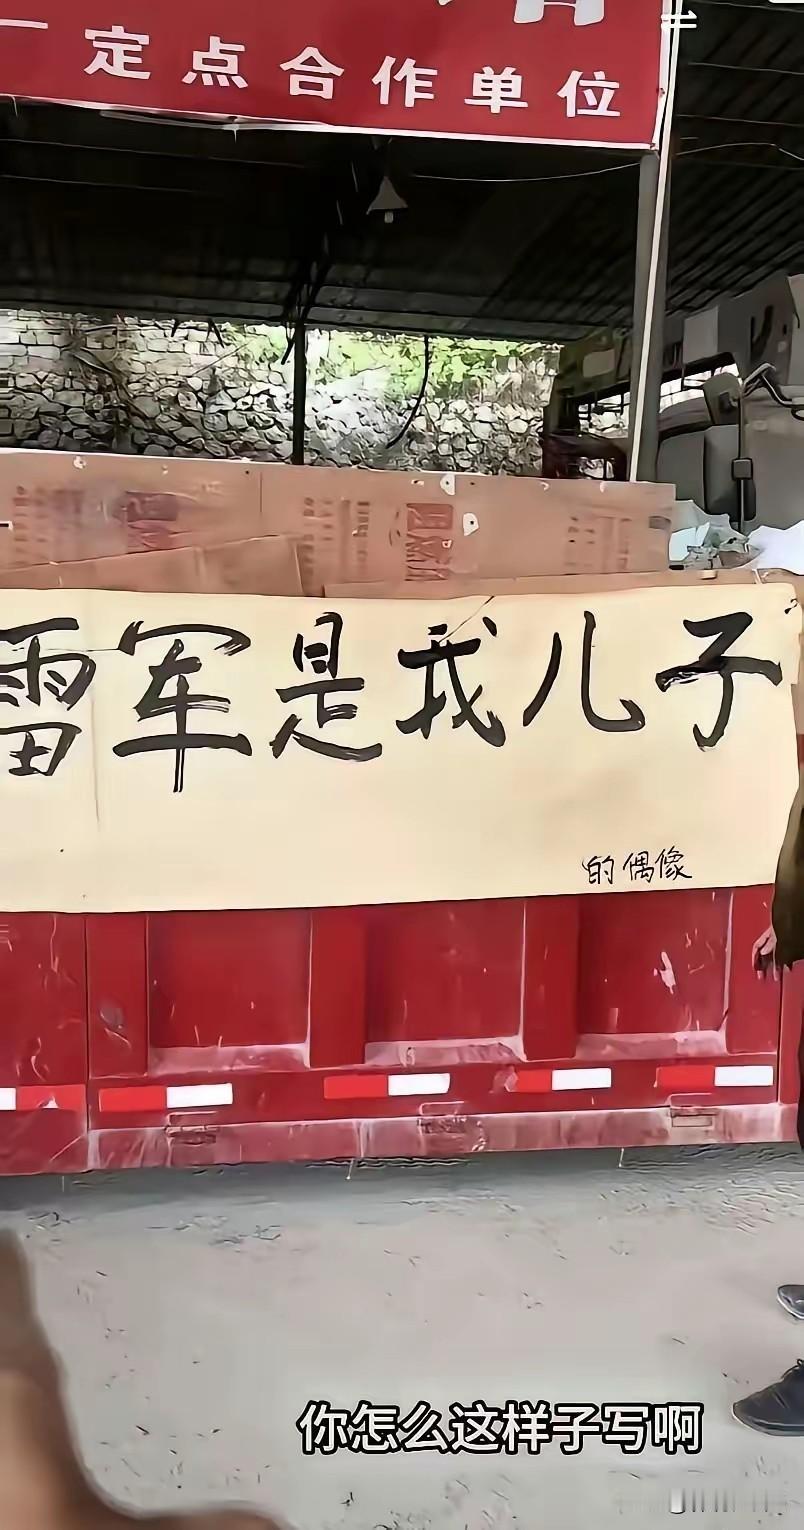 定点合作单位
雷军是我儿子
的偶像
你怎么这样子写啊